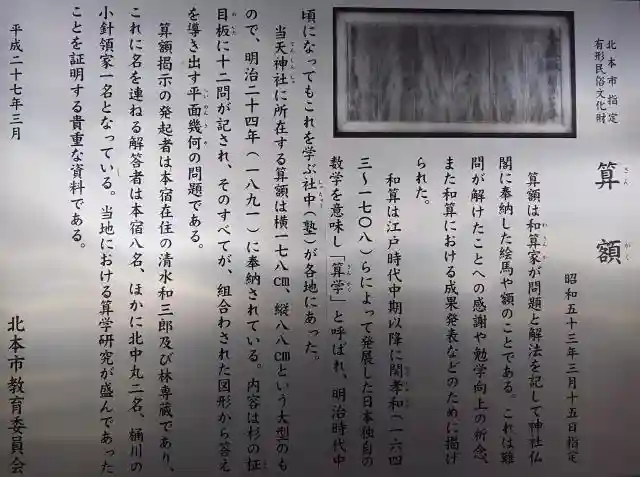 北本市指定
有形民俗文化財
算額
さんがく
昭和五十三年三月十五日指定
算額は和算家が問題と解法を記して神社仏
閣に奉納した絵馬や額のことである。これは難
問が解けたことへの感謝や勉学向上の祈念、
また和算における成果発表などのために掲げ
られた。
和算は江戸時代中期以降に関孝和(一六四
三~一七〇八)らによって発展した日本独自の
数学を意味し「算学」と呼ばれ、明治時代中
頃になってもこれを学ぶ社中(塾)が各地にあった。
当天神社に所在する算額は横一七八㎝、縦八八㎝という大型のも
ので、明治二十四年(一八九一)に奉納されている。内容は杉の柾
目板に十二問が記され、そのすべてが、組合わされた図形から答え
を導き出す平面幾何の問題である。
算額掲示の発起者は本宿在住の清水和三郎及び林専蔵であり、
これに名を連ねる解答者は本宿八名、ほかに北中丸二名、桶川の
小針領家一名となっている。当地における算学研究が盛んであった
ことを証明する貴重な資料である。
平成二十七年三月
北本市教育委員会